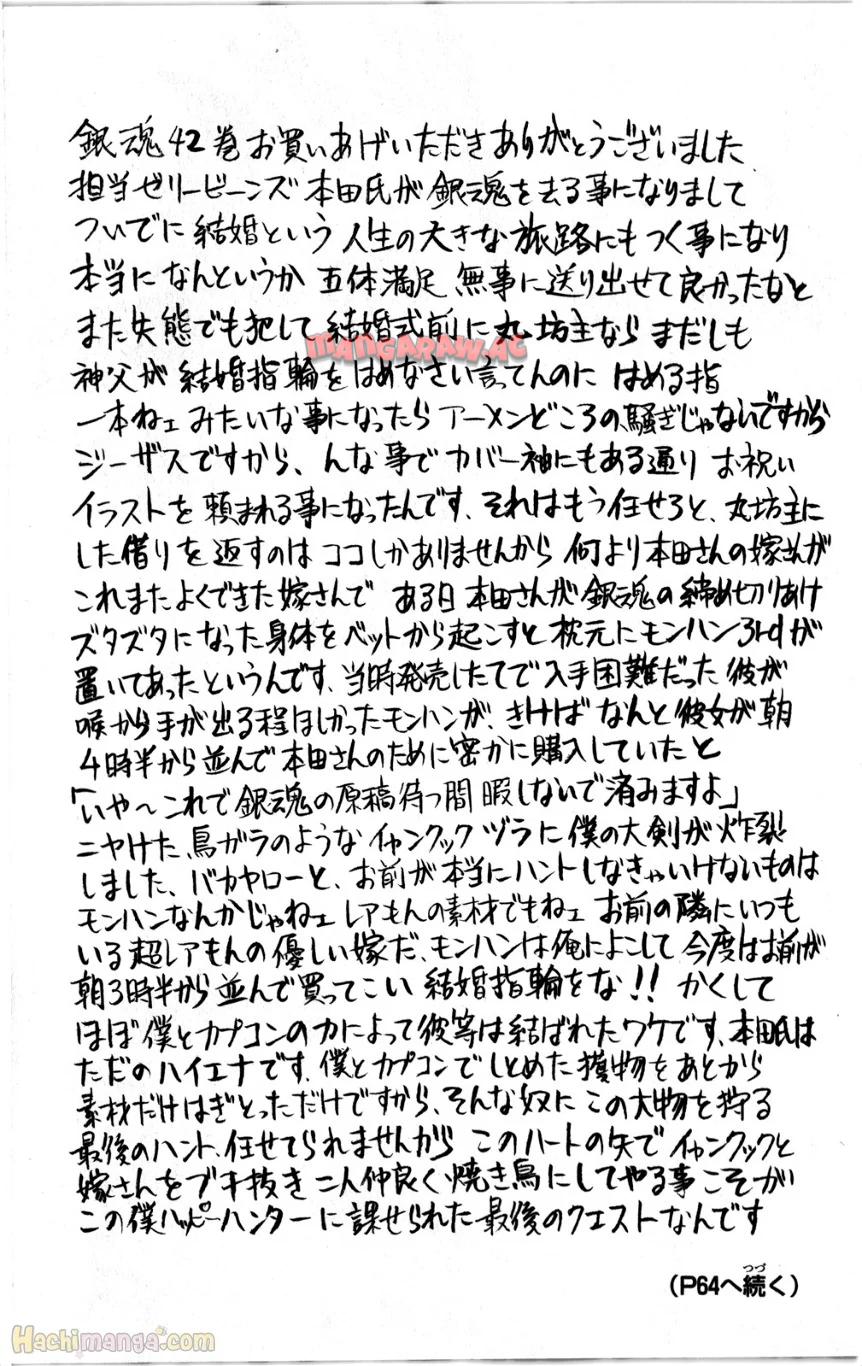 銀魂42巻お買いあげいただきありがとうございました
担当ゼリービーンズ本田氏が銀魂を去る事になりまして
ついでに結婚という人生の大きな旅路にもつく事になり
本当になんというか 五体満足 無事に送り出せて良かったなと
また失態でも犯して結婚式前に丸坊主ならまだしも
MANGARAW.AC
神父が結婚指輪をはめなさい言ってんのに はめる指
一本ねェみたいな事になったらアーメンどころの騒ぎじゃないですから
ジーザスですから、んな事でカバー袖にもある通りお祝い
イラストを頼まれる事になったんです、それはもう任せろと、丸坊主に
した借りを返すのはココしかありませんから 何より本田さんの嫁さんが
これまたよくできた嫁さんで ある日本田さんが銀魂の締め切りあけ
ズタズタになった身体をベットから起こすと枕元にモンハン3rdが
置いてあったというんです、当時発売したてで入手困難だった 彼が
喉から手が出る程ほしかったモンハンが、きけばなんと彼女が朝
4時半から並んで本田さんのために密かに購入していたと
「いや〜これで銀魂の原稿待つ間暇しないで済みますよ」
ニヤけた鳥ガラのようなイャンクックヅラに僕の大剣が炸裂
しました、バカヤローと、お前が本当にハントしなきゃいけないものは
モンハンなんかじゃねェ レアもんの素材でもねェ お前の隣にいつも
いる超レアもんの優しい嫁だ、モンハンは俺によこして今度はお前が
朝3時半から並んで買ってこい 結婚指輪をな!! かくして
ほぼ僕とカプコンの力によって彼等は結ばれたワケです、本田氏は
ただのハイエナです、僕とカプコンでしとめた獲物をあとから
素材だけはぎとっただけですから、そんな奴にこの大物を狩る
最後のハント、任せてられませんから このハートの矢でイャンクックと
嫁さんをブチ抜き二人仲良く焼き鳥にしてやる事こそが
この僕ハッピーハンターに課せられた最後のクエストなんです
(P64へ続く)
つづ
Hachimanga.com